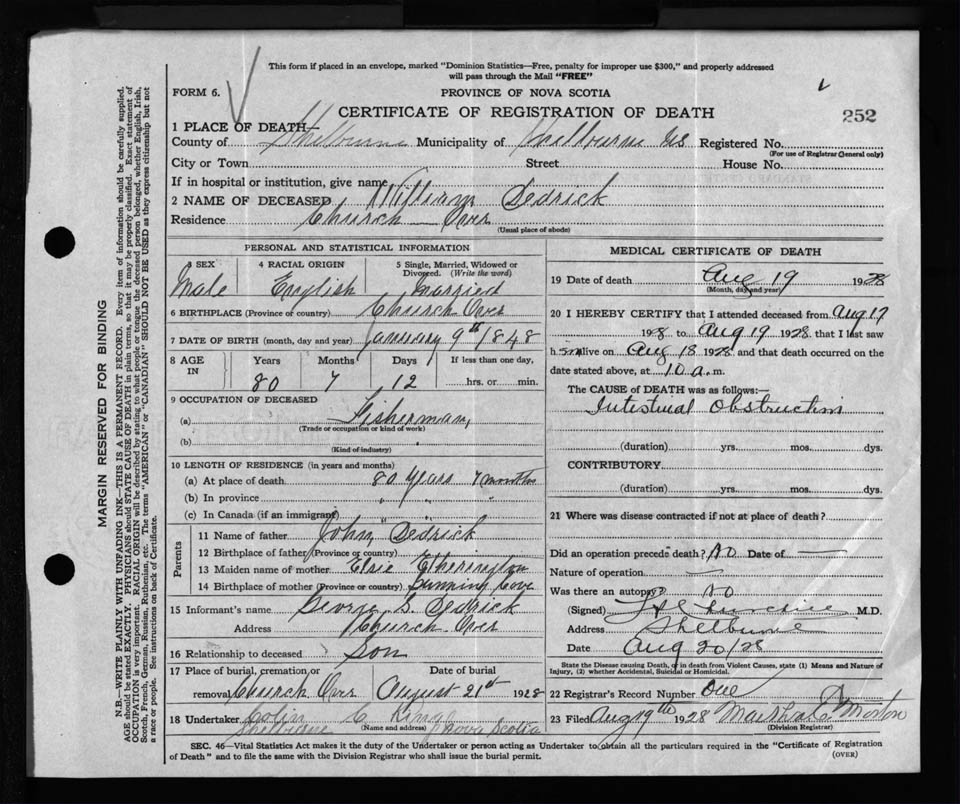 This form if placed in an envelope, marked "Dominion Statistics—Free, penalty for improper use $300," and properly addressed
will pass through the Mail "FREE"
FORM 6.
PROVINCE OF NOVA SCOTIA
CERTIFICATE OF REGISTRATION OF DEATH
252
1 PLACE OF DEATH—
County of Shelburne Municipality of Shelburne NS Registered No.
(For use of Registrar General only)
City or Town Street House No.
If in hospital or institution, give name
2 NAME OF DECEASED William Dedrick
Residence Church Over
(Usual place of abode)
PERSONAL AND STATISTICAL INFORMATION
3 SEX 4 RACIAL ORIGIN 5 Single, Married, Widowed or
Divorced. (Write the word)
Male English Married
6 BIRTHPLACE (Province or country) Church Over
7 DATE OF BIRTH (month, day and year) January 9th 1848
8 AGE IN Years Months Days If less than one day,
80 7 12 hrs. or min.
9 OCCUPATION OF DECEASED
(a) Fisherman,
(Trade or occupation or kind of work)
(b)
(Kind of industry)
10 LENGTH OF RESIDENCE (in years and months)
(a) At place of death 80 years 7 months
(b) In province " " "
(c) In Canada (if an immigrant) " "
Parents
11 Name of father John Dedrick
12 Birthplace of father (Province or country)
13 Maiden name of mother Elsie Etherington
14 Birthplace of mother (Province or country) Gunning Cove
15 Informant's name George G. Dedrick
Address Church Over
16 Relationship to deceased Son
17 Place of burial, cremation or Date of burial
removal Church Over August 21st 1928
18 Undertaker Colin C King
(Name and address)
Shelburne Nova Scotia
MEDICAL CERTIFICATE OF DEATH
19 Date of death Aug 19 1928
(Month, day and year)
20 I HEREBY CERTIFY that I attended deceased from Aug 17
1928 to Aug 19 1928 that I last saw
h im alive on Aug 18 1928 and that death occurred on the
date stated above, at 10 a. m.
The CAUSE of DEATH was as follows:—
Intestinal Obstruction
(duration) yrs. mos. dys.
CONTRIBUTORY
(duration) yrs. mos. dys.
21 Where was disease contracted if not at place of death?
Did an operation precede death? No Date of —
Nature of operation —
Was there an autopsy? No
(Signed) M.D.
Address Shelburne
Date Aug 20/28
State the Disease causing Death, or in death from Violent Causes, state (1) Means and Nature of
Injury, (2) whether Accidental, Suicidal or Homicidal.
22 Registrar's Record Number One
23 Filed Aug 19th 1928 Marshal C Morton
(Division Registrar)
SEC. 46—Vital Statistics Act makes it the duty of the Undertaker or person acting as Undertaker to obtain all the particulars required in the "Certificate of Registration
of Death" and to file the same with the Division Registrar who shall issue the burial permit.
(OVER)
MARGIN RESERVED FOR BINDING
N.B.—WRITE PLAINLY WITH UNFADING INK—THIS IS A PERMANENT RECORD. Every item of information should be carefully supplied.
AGE should be stated EXACTLY. PHYSICIANS should STATE CAUSE OF DEATH in plain terms, so that it may be properly classified. Exact statement of
OCCUPATION is very important. RACIAL ORIGIN will be described by stating to what people or tongue the deceased person belonged, whether English, Irish,
Scotch, French, German, Russian, Ruthenian, etc. The terms "AMERICAN" or "CANADIAN" SHOULD NOT BE USED as they express citizenship but not
a race or people. See instructions on back of Certificate.